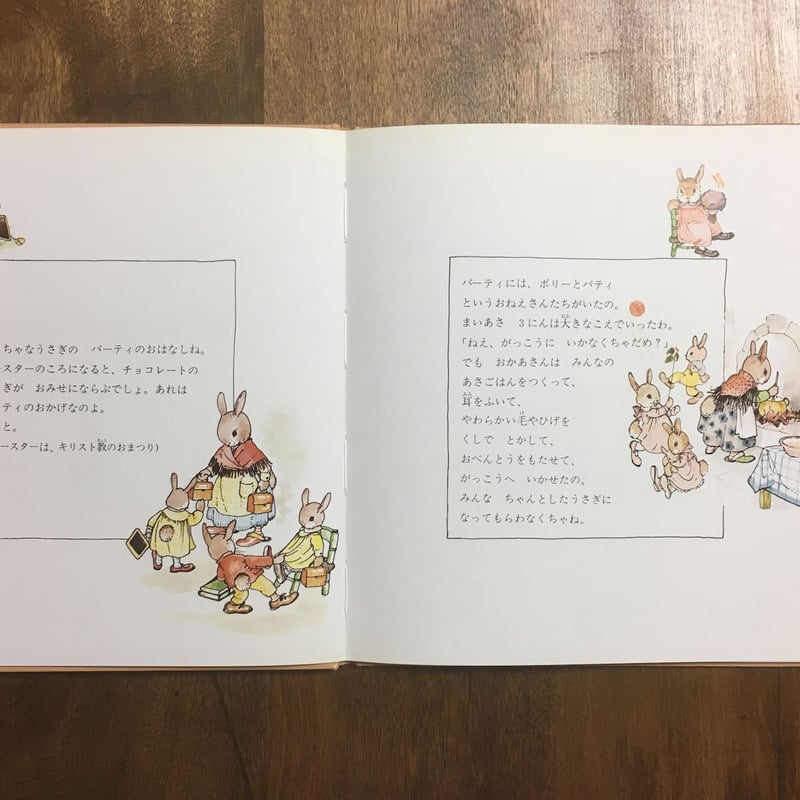 ちゃなうさぎの　バーティのおはなしね。
ースターのころになると、チョコレートの
ぎが　おみせにならぶでしょ。あれは
ーティのおかげなのよ。
と。
ースターは、キリスト教のおまつり)
バーティには、ポリーとパティ
というおねえさんたちがいたの。
まいあさ　3にんは大きなこえでいったわ。
「ねえ、がっこうに　いかなくちゃだめ？」
でも　おかあさんは　みんなの
あさごはんをつくって、
耳をふいて、
やわらかい毛やひげを
くしで　とかして、
おべんとうをもたせて、
がっこうへ　いかせたの。
みんな　ちゃんとしたうさぎに
なってもらわなくちゃね。